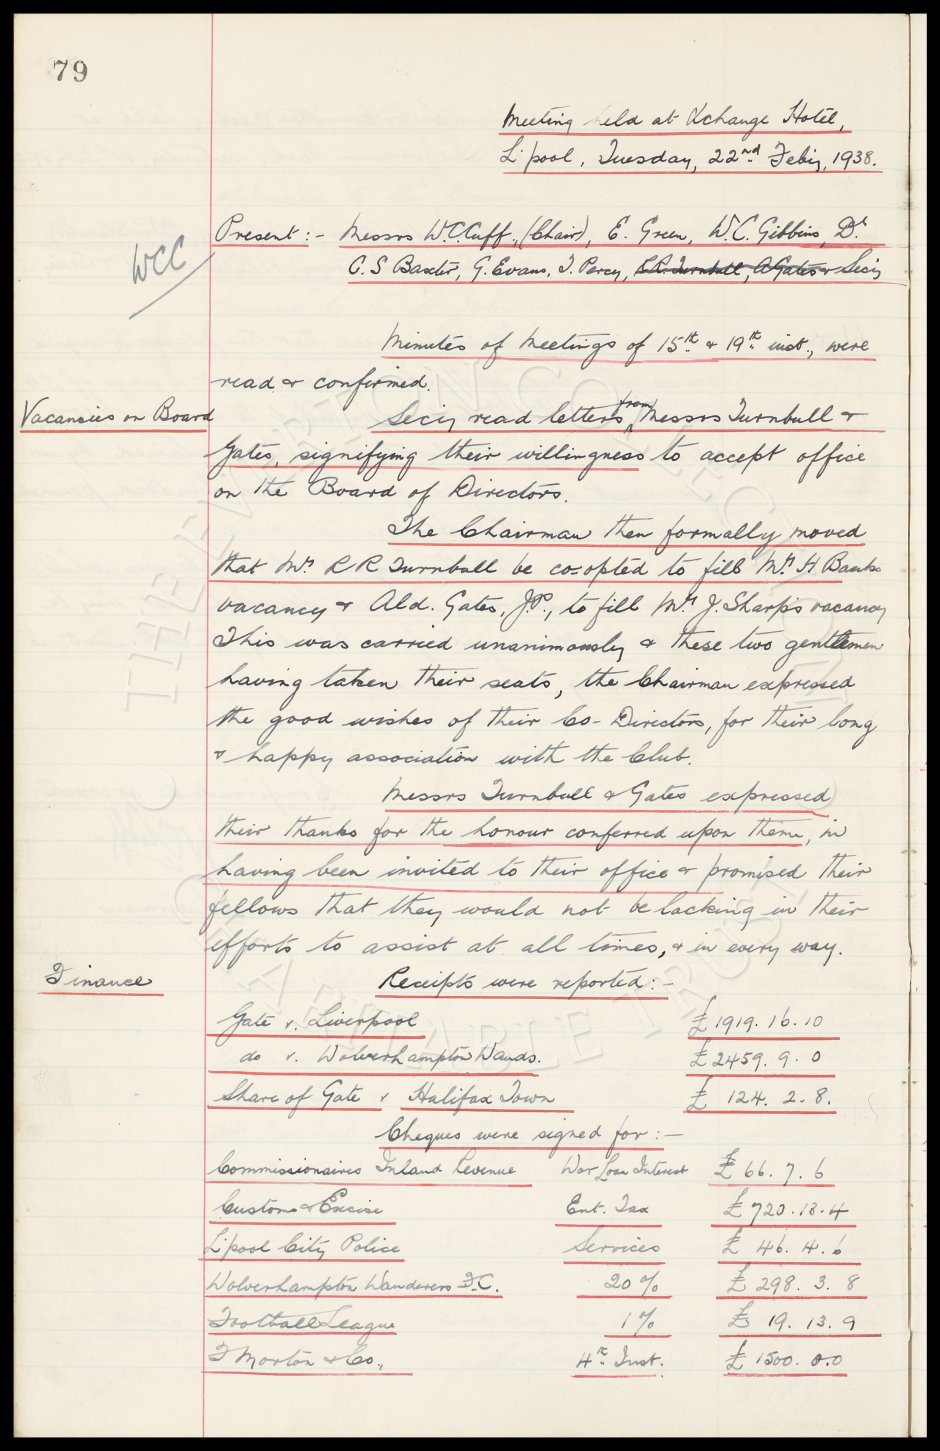 79
Meeting held at Xchange Hotel,
L'pool, Tuesday, 22nd Feby, 1938.
Present :- Messrs W.C. Cuff, (Chair), E. Green, W.C. Gibbins, Dr
WCC
C.S Baxter, G. Evans, T. Percy, R.R. Turnbull, A Gates & Secy
Minutes of Meetings of 15th & 19th inst., were
read & confirmed.
Vacancies on Board
Secy read letters from Messrs Turnbull &
Gates, signifying their willingness to accept office
on the Board of Directors.
The Chairman then formally moved
that Mr R R Turnbull be co-opted to fill Mr H. Banks
vacancy & Ald. Gates, J.P., to fill Mr J. Sharp's vacancy
This was carried unanimously & these two gentlemen
having taken their seats, the Chairman expressed
the good wishes of their Co-Directors, for their long
& happy association with the Club.
Messrs Turnbull & Gates expressed
their thanks for the honour conferred upon them, in
having been invited to their office & promised their
fellows that they would not be lacking in their
efforts to assist at all times, & in every way.
Finance
Receipts were reported :-
Gate v. Liverpool £1919.16.10
do v. Wolverhampton Wands. £2459.9.0
Share of Gate v Halifax Town £124.2.8.
Cheques were signed for :-
Commissionaires Inland Revenue War Loan Interest £66.7.6
Customs & Excise Ent. Tax £720.18.4
L'pool City Police Services £46.4.6
Wolverhampton Wanderers F.C. 20% £298.3.8
Football League 1% £19.13.9
F Morton & Co., 4th Inst. £1500.0.0
THE EVERTON COLLECTION
CHARITABLE TRUST